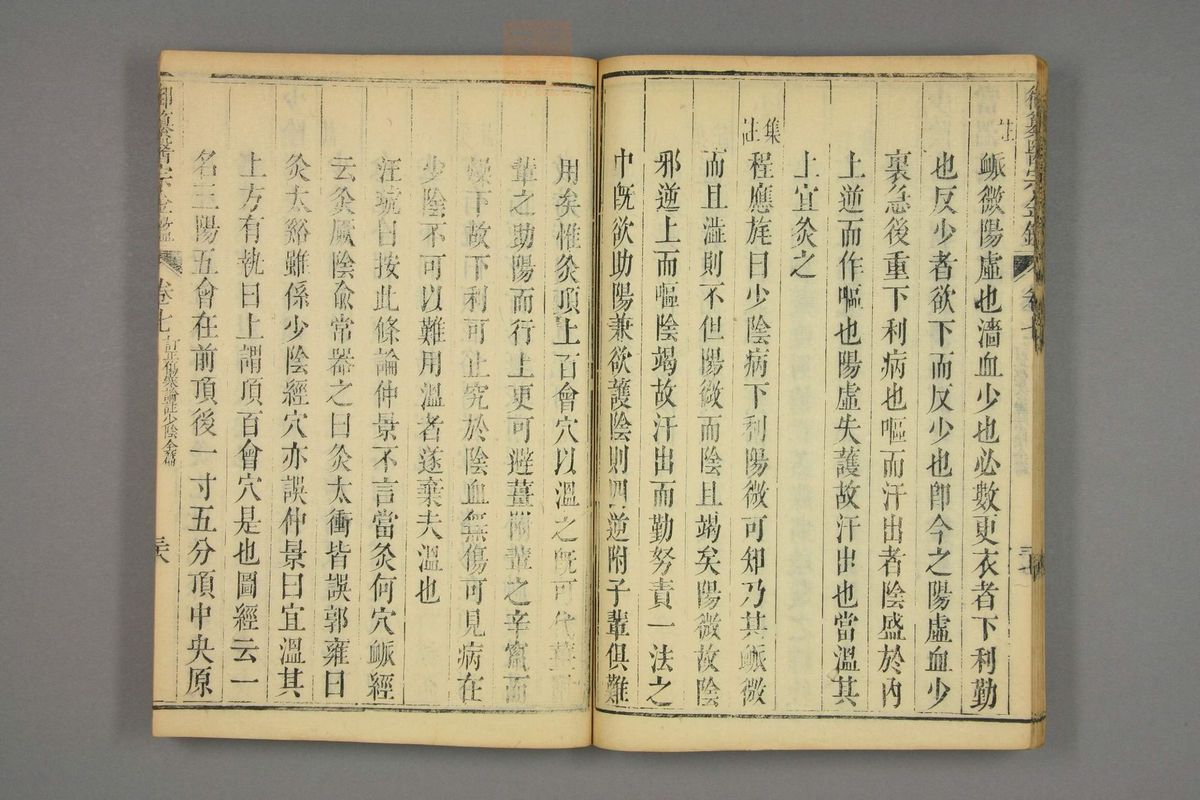 御纂醫宗金鑑 卷七
註
脈微陽虛也濇血少也必數更衣者下利勤
也反少者欲下而反少也卽今之陽虛血少
裏急後重下利病也嘔而汗出者陰盛於內
上逆而作嘔也陽虛失護故汗出也當溫其
上宜灸之
集註
程應旄曰少陰病下利陽微可知乃其脈微
而且濇則不但陽微而陰且竭矣陽微故陰
邪逆上而嘔陰竭故汗出而勤努責一法之
中旣欲助陽兼欲護陰則四逆附子輩俱難
用矣惟灸頂上百會穴以溫之旣可代
輩之助陽而行上更可避薑附輩之辛竄而
下故下利可止究於陰血無傷可見病在
少陰不可以難用溫者遂棄夫溫也
汪琥曰按此條論仲景不言當灸何穴脈經
云灸厥陰俞常器之曰灸太衝皆誤郭雍曰
灸太谿雖係少陰經穴亦誤仲景曰宜溫其
上方有執曰上謂頂百會穴是也圖經云一
名三陽五會在前頂後一寸五分頂中央原
御纂醫宗金鑑 卷七 訂正傷寒論註少陰全篇 三六